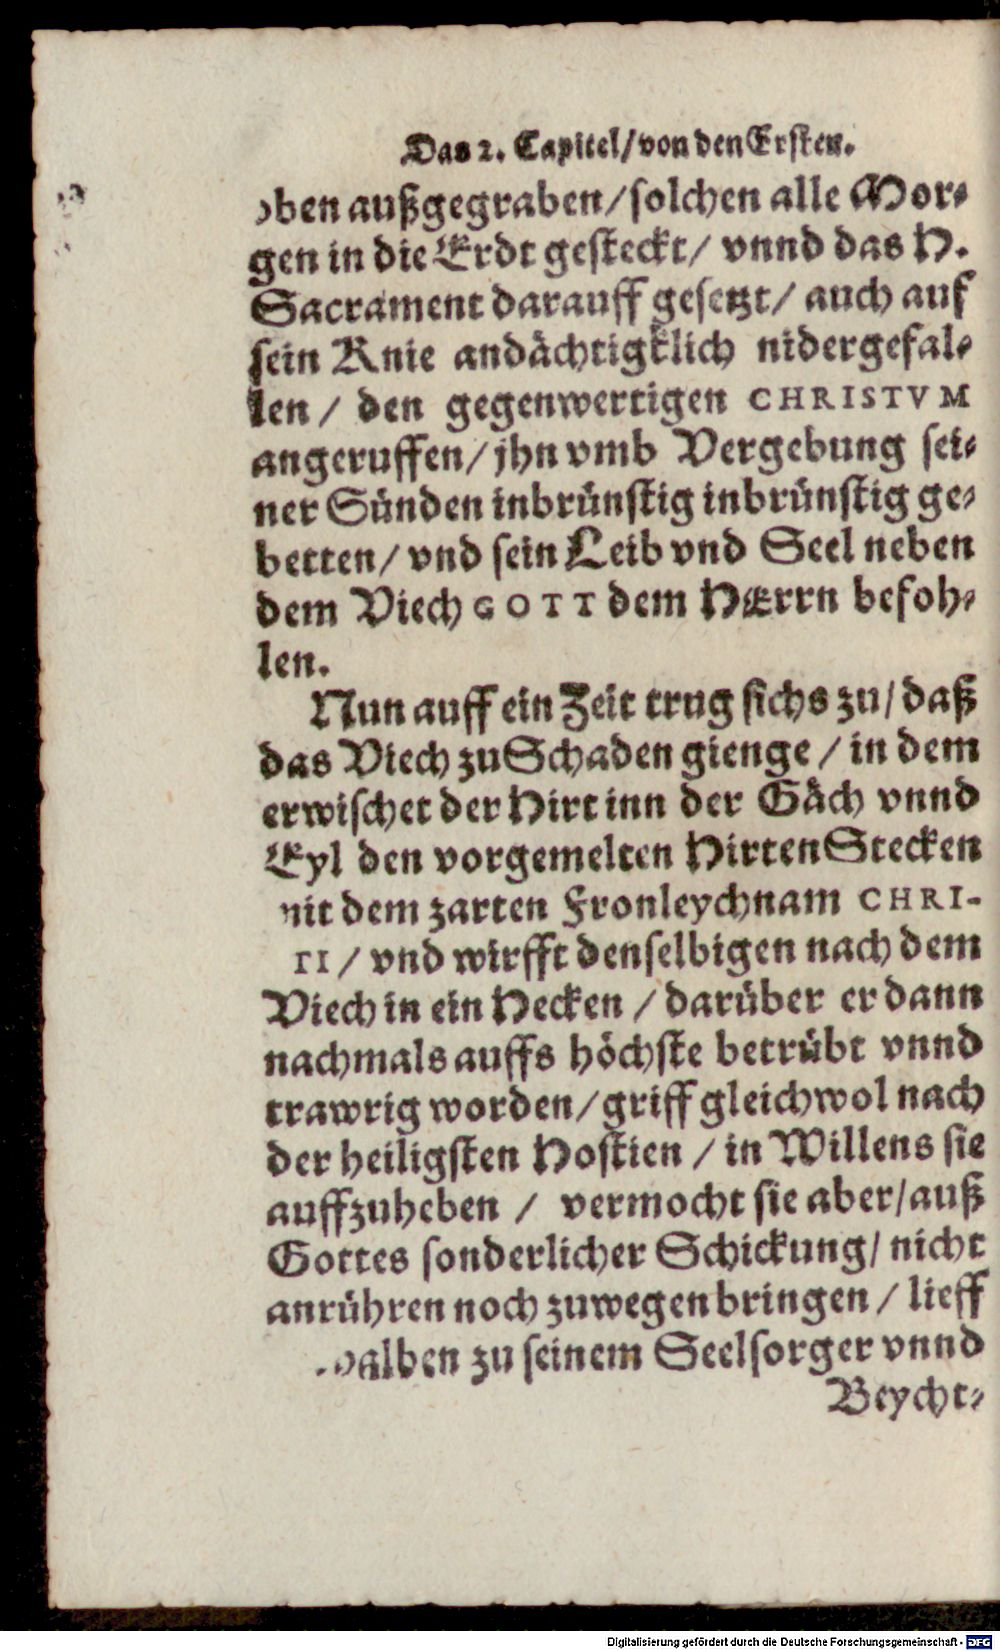 Das 2. Capitel/ von den Ersten.
oben außgegraben/ solchen alle Mor-
gen in die Erdt gesteckt/ vnnd das H.
Sacrament darauff gesetzt/ auch auf
sein Knie andächtigklich nidergefal-
len/ den gegenwertigen CHRISTVM
angeruffen/ jhn vmb Vergebung sei-
ner Sünden inbrünstig inbrünstig ge-
betten/ vnd sein Leib vnd Seel neben
dem Viech GOTT dem HErrn befoh-
len.
Nun auff ein Zeit trug sichs zu/ daß
das Viech zu Schaden gienge/ in dem
erwischet der Hirt inn der Gäch vnnd
Eyl den vorgemelten Hirten Stecken
mit dem zarten Fronleychnam CHRI-
TI/ vnd wirfft denselbigen nach dem
Viech in ein Hecken/ darüber er dann
nachmals auffs höchste betrübt vnnd
trawrig worden/ griff gleichwol nach
der heiligsten Hostien/ in Willens sie
auffzuheben/ vermocht sie aber/ auß
Gottes sonderlicher Schickung/ nicht
anrühren noch zuwegen bringen/ lieff
halben zu seinem Seelsorger vnnd
Beycht-
Digitalisierung gefördert durch die Deutsche Forschungsgemeinschaft - DFG